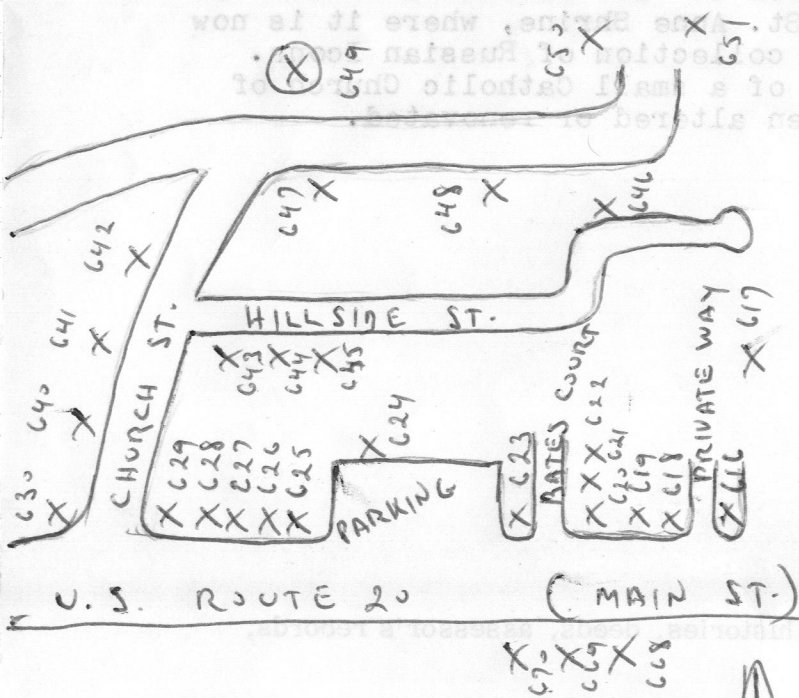 St. Anne Shrine, where it is now
collection of Russian Icons.
of a small Catholic Church of
en altered or renovated.
649
650
651
647
648
646
642
641
640
630
CHURCH ST.
HILLSIDE ST.
643
644
645
617
PRIVATE WAY
BATES COURT
624
629
628
627
626
625
PARKING
623
622
621
620
619
618
616
U.S. ROUTE 20 (MAIN ST.)
histories, deeds, assessor's records,
670
669
668